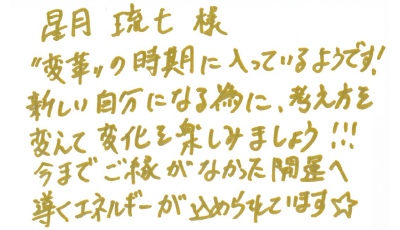 星月 琉七 様
"変革"の時期に入っているようです!
新しい自分になる為に、考え方を
変えて変化を楽しみましょう!!!
今までご縁がなかった開運へ
導くエネルギーが込められています☆